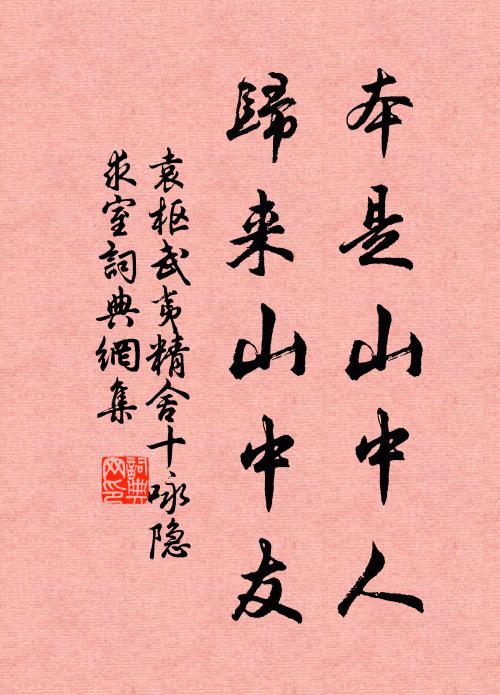 本是山中人
歸来山中友
袁枢武夷精舍十咏隐
求室詞典網集
詞典网印